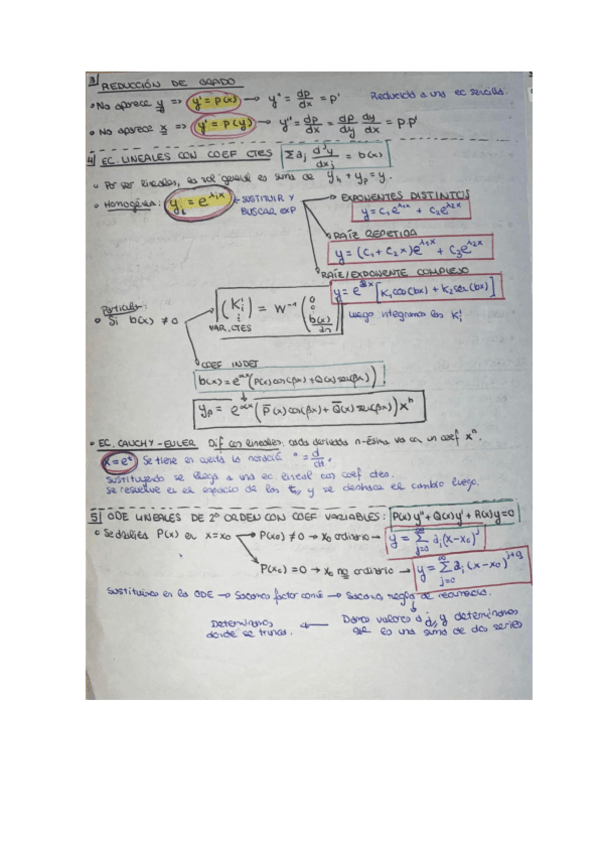 3/ REDUCCIÓN DE GRADO
• No aparece y => y' = p(x) → y'' = dp/dx = p' Reducida a una ec sencilla.
• No aparece x => y' = p(y) → y'' = dp/dx = dp/dy dy/dx = p·p'
4/ EC. LINEALES CON COEF CTES Σ aj d^j y/dx^j = b(x)
• Por ser lineales, es sol general es suma de yh + yp = y.
• Homogénea: yh = e^(λix) ← SUSTITUIR Y BUSCAR EXP
EXPONENTES DISTINTOS
y = C1 e^(λ1x) + C2 e^(λ2x)
RAÍZ REPETIDA
y = (C1 + C2 x) e^(λ1x) + C3 e^(λ2x)
RAÍZ/EXPONENTE COMPLEJO
y = e^(ax) [K1 cos(bx) + K2 sen(bx)]
Particular:
• Si b(x) ≠ 0
(K1' ⋮) = W^-1 (0 0 b(x)/an) Luego integramos las Ki'
VAR. CTES
COEF INDET
b(x) = e^(αx) (P(x) cos(βx) + Q(x) sen(βx))
yp = e^(αx) (P̄(x) cos(βx) + Q̄(x) sen(βx)) x^h
• EC. CAUCHY-EULER Dif con lineales, cada derivada n-ésima va con un coef x^n.
x = e^t Se tiene en cuenta la notació ° = d/dt,
sustituyendo se llega a una ec lineal con coef ctes.
Se resuelve en el espacio de las t, y se deshace el cambio luego.
5/ ODE LINEALES DE 2º ORDEN CON COEF VARIABLES: P(x)y'' + Q(x)y' + R(x)y = 0
• Se analiza P(x) en x = x0
P(x0) ≠ 0 → x0 ordinario → y = Σ(j=0, ∞) aj (x-x0)^j
P(x0) = 0 → x0 no ordinario → y = Σ(j=0, ∞) aj (x-x0)^(j+q)
Sustituimos en la ODE → Sacamos factor común → Sacamos regla de recurrencia.
Damos valores a j, y determinamos
que es una suma de dos series
Determinamos
donde se trunca.